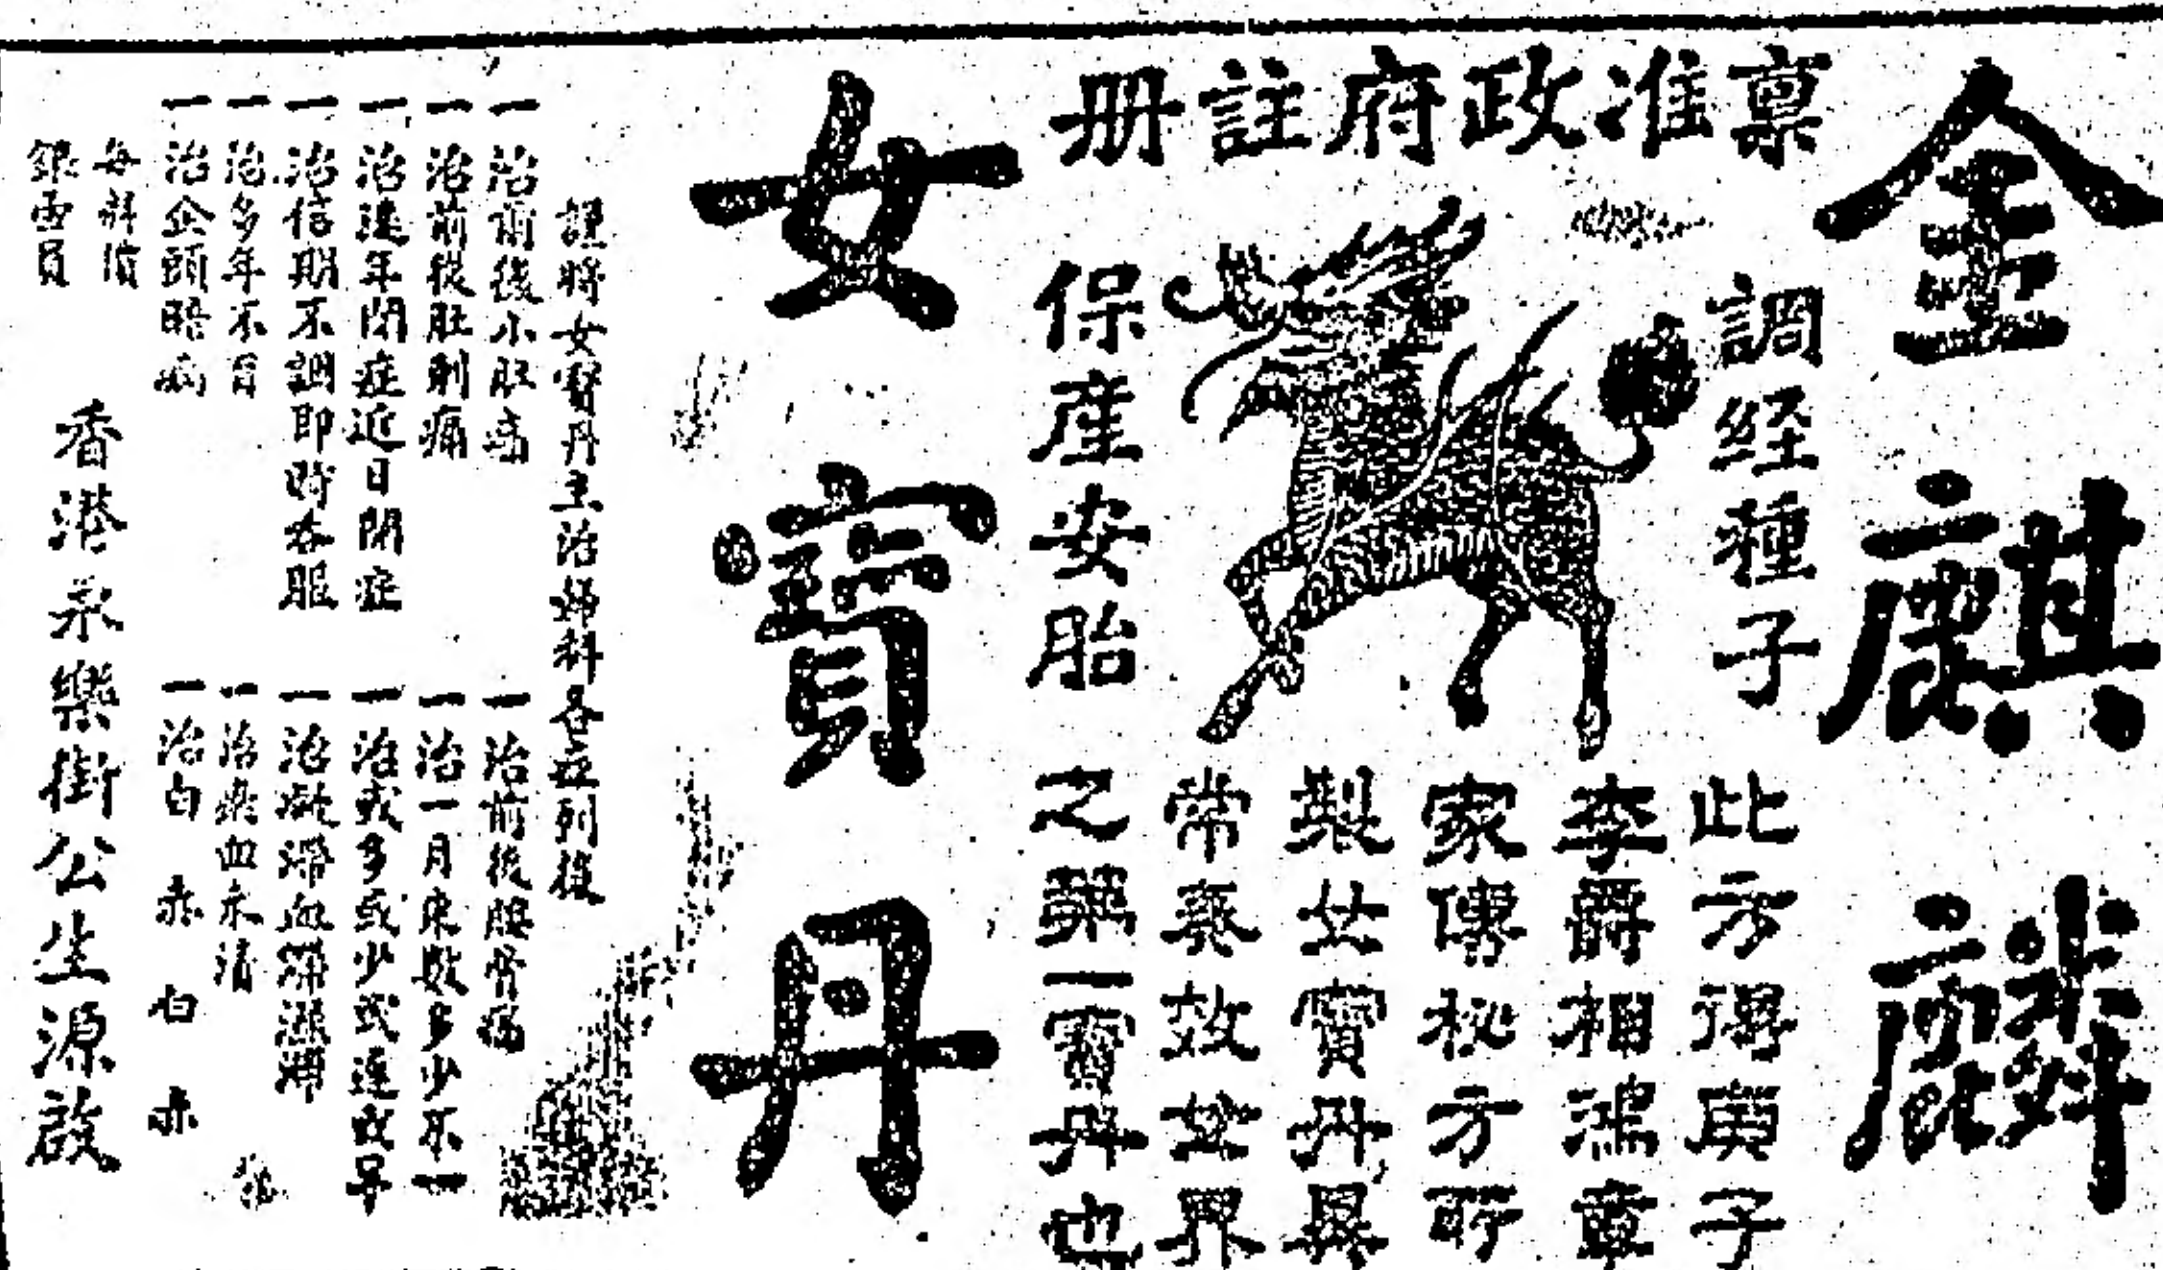 金麒麟
稟准政府註册
調経種子
保産安胎
此方得庚子
李爵相鴻章
家傳秘方所
製女寶丹異
常奏效女界
之第一寶丹也
女寶丹
謹將女寶丹主治婦科各症列後
一治前後小肚痛
一治前後肚刺痛
一治遠年閉症近日閉症
一治信期不調即時吞服
一治多年不育
一治企頭晤病
一治前後腰骨痛
一治一月來數多少不一
一治或多或少或遲或早
一治凝滯血淋濕淋
一治瘀血未清
一治白赤白赤
每料價
銀壹員
香港永樂街公生源啟